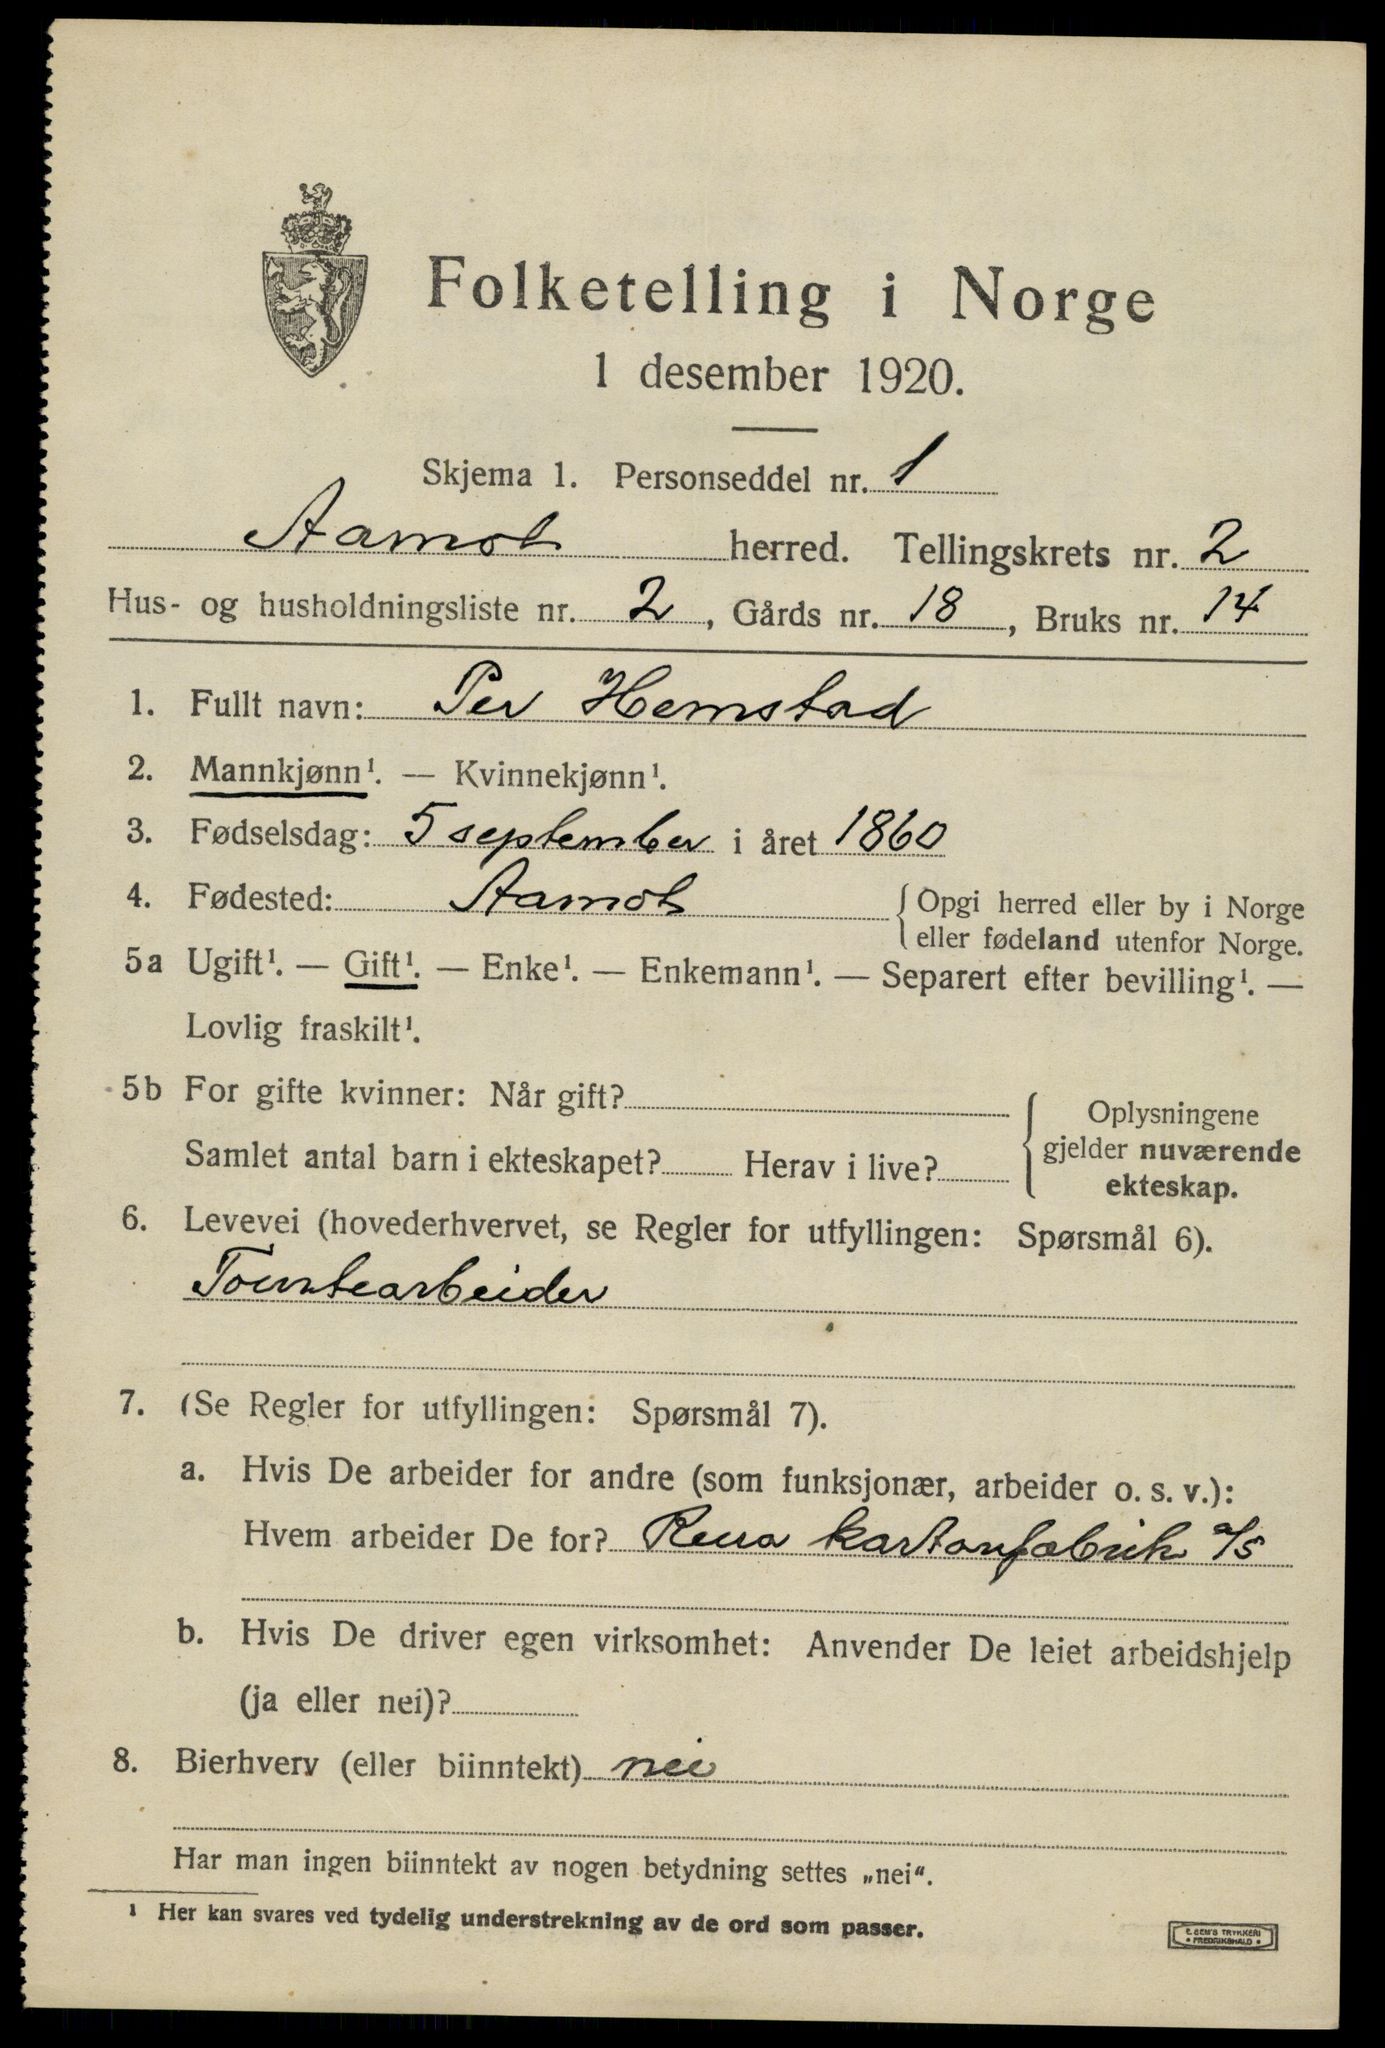 Folketelling i Norge
1 desember 1920.
Skjema 1. Personseddel nr. 1
Aamot herred. Tellingskrets nr. 2
Hus- og husholdningsliste nr. 2, Gårds nr. 18, Bruks nr. 14
1. Fullt navn: Per Hemstad
2. Mannkjønn¹. — Kvinnekjønn¹.
3. Fødselsdag: 5 september i året 1860
4. Fødested: Aamot { Opgi herred eller by i Norge
eller fødeland utenfor Norge.
5a Ugift¹. — Gift¹. — Enke¹. — Enkemann¹. — Separert efter bevilling¹. —
Lovlig fraskilt¹.
5b For gifte kvinner: Når gift?
Samlet antal barn i ekteskapet? Herav i live?
{ Oplysningene
gjelder nuværende
ekteskap.
6. Levevei (hovederhvervet, se Regler for utfyllingen: Spørsmål 6).
Tomtearbeider
7. (Se Regler for utfyllingen: Spørsmål 7).
a. Hvis De arbeider for andre (som funksjonær, arbeider o. s. v.):
Hvem arbeider De for? Rena kartonfabrik a/s
b. Hvis De driver egen virksomhet: Anvender De leiet arbeidshjelp
(ja eller nei)?
8. Bierhverv (eller biinntekt) nei
Har man ingen biinntekt av nogen betydning settes „nei“.
¹ Her kan svares ved tydelig understrekning av de ord som passer.
E. SEM'S TRYKKERI
• FREDRIKSHALD •